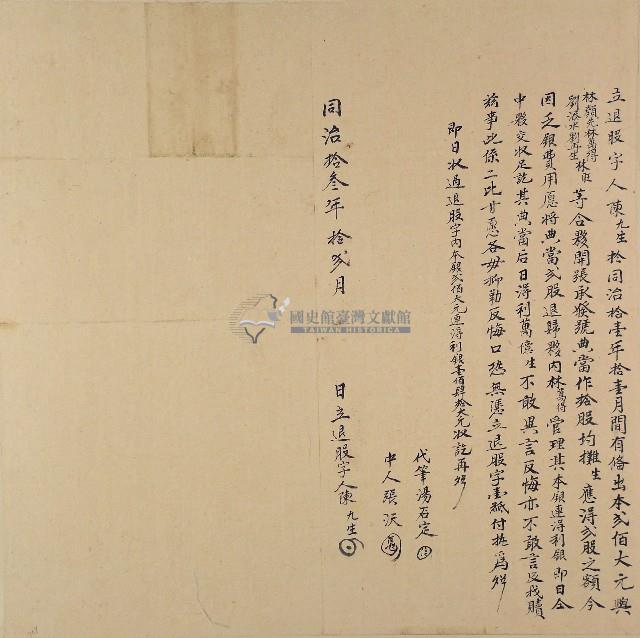 立退股字人陳九生於同治拾壹年拾壹月間有備出本弍佰大元與
林顏 林萬得 林旺
劉 水 劉丹生
等合夥開張承發號典當作拾股均攤生應得弍股之額今
因乏銀費用愿將典當弍股退歸夥內林萬得管理其本銀連得利銀即日仝
中數交收足訖其典當后日得利萬億生不敢異言反悔亦不敢言及找贖
等事此係二比甘愿各毋抑勒反悔口恐無憑立退股字壹紙付執為炤
即日收過退股字內本銀弍佰大元連得利銀壹佰肆拾大元收訖再炤
代筆湯石定
中人張沃
同治拾叁年拾弍月 日立退股字人陳九生
國史館臺灣文獻館
TAIWAN HISTORICA